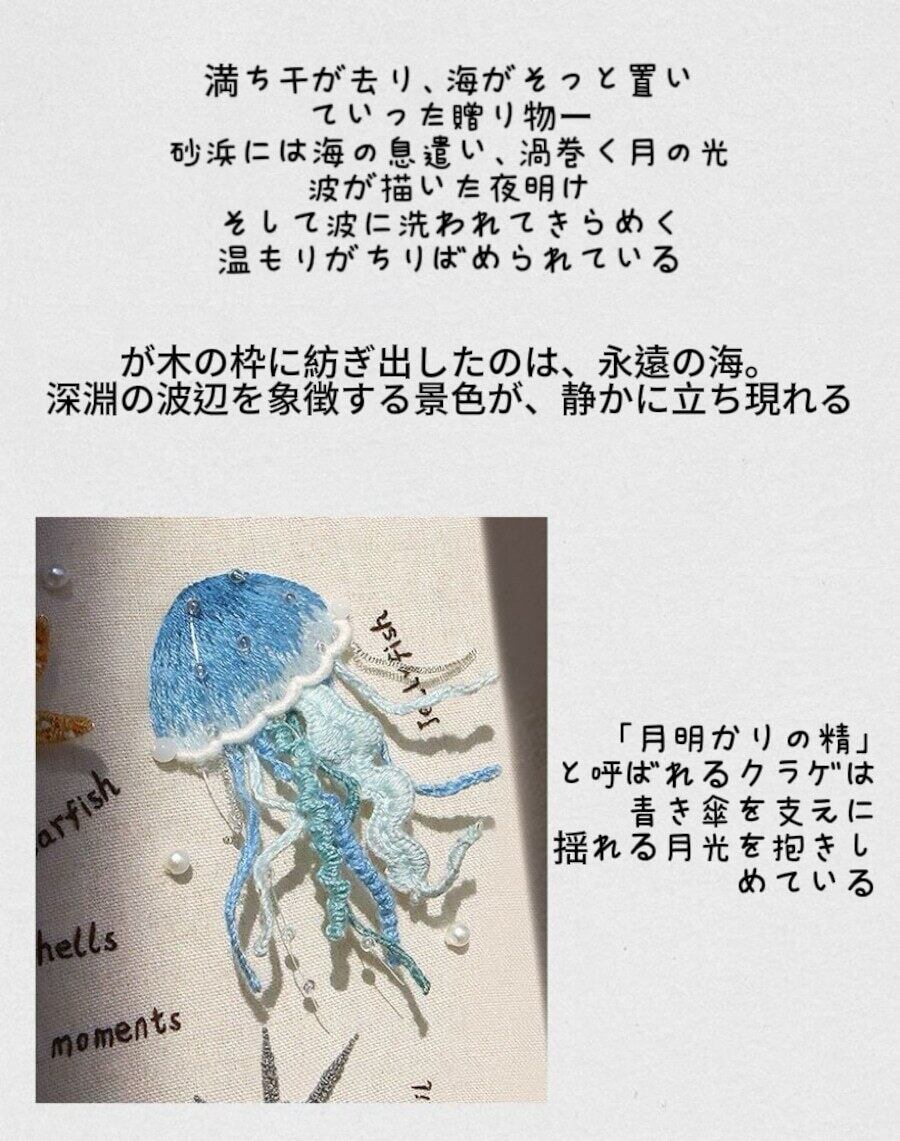 満ち干が去り、海がそっと置い
ていった贈り物ー
砂浜には海の息遣い、渦巻く月の光
波が描いた夜明け
そして波に洗われてきらめく
温もりがちりばめられている
が木の枠に紡ぎ出したのは、永遠の海。
深淵の波辺を象徴する景色が、静かに立ち現れる
Jellyfish
arfish
hells
moments
「月明かりの精」
と呼ばれるクラゲは
青き傘を支えに
揺れる月光を抱きし
めている